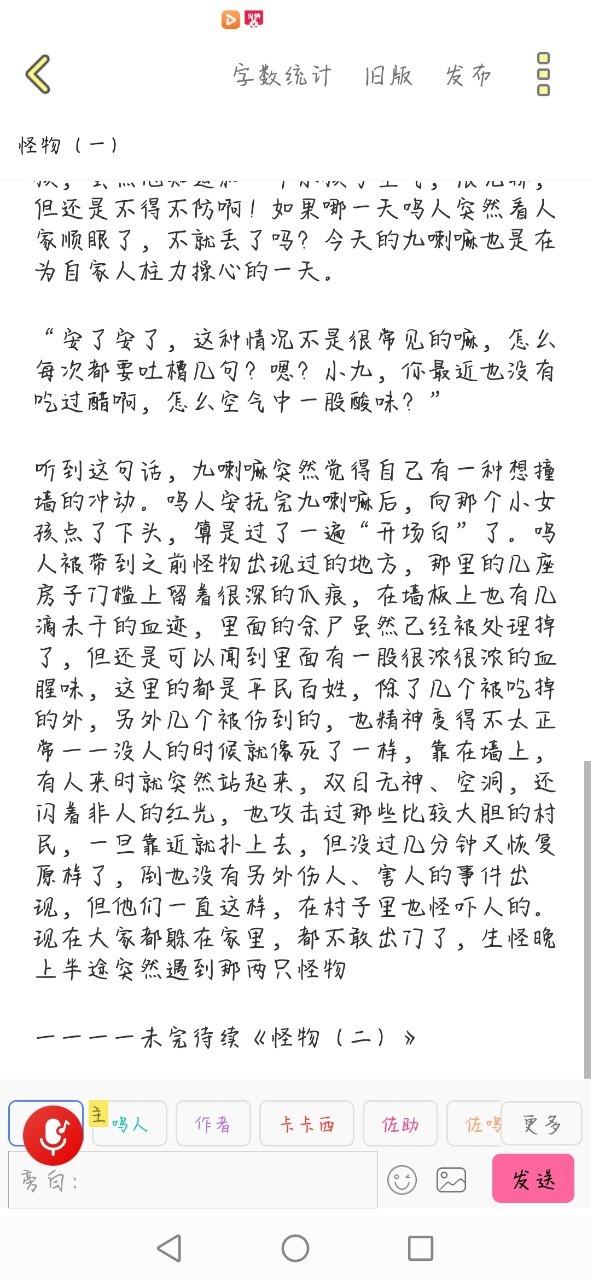 字数统计 旧版 发布
怪物（一）
但还是不得不防啊！如果哪一天鸣人突然看人
家顺眼了，不就丢了吗？今天的九喇嘛也是在
为自家人柱力操心的一天。
“安了安了，这种情况不是很常见的嘛，怎么
每次都要吐槽几句？嗯？小九，你最近也没有
吃过醋啊，怎么空气中一股酸味？”
听到这句话，九喇嘛突然觉得自己有一种想撞
墙的冲动。鸣人安抚完九喇嘛后，向那个小女
孩点了下头，算是过了一遍“开场白”了。鸣
人被带到之前怪物出现过的地方，那里的几座
房子门槛上留着很深的爪痕，在墙板上也有几
滴未干的血迹，里面的余尸虽然已经被处理掉
了，但还是可以闻到里面有一股很浓很浓的血
腥味，这里的都是平民百姓，除了几个被吃掉
的外，另外几个被伤到的，也精神变得不太正
常一一没人的时候就像死了一样，靠在墙上，
有人来时就突然站起来，双目无神、空洞，还
闪着非人的红光，也攻击过那些比较大胆的村
民，一旦靠近就扑上去，但没过几分钟又恢复
原样了，倒也没有另外伤人、害人的事件出
现，但他们一直这样，在村子里也怪吓人的。
现在大家都躲在家里，都不敢出门了，生怪晚
上半途突然遇到那两只怪物
一一一一未完待续《怪物（二）》
主 鸣人 作者 卡卡西 佐助 佐鸣 更多
旁白： 发送